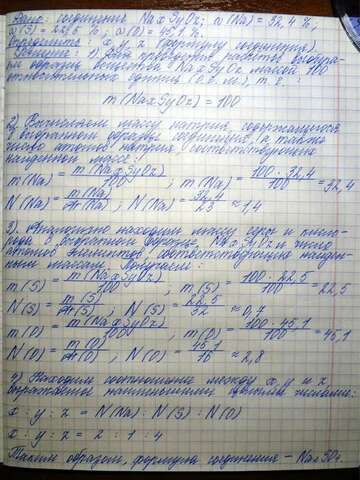 Дано: соединение NaxSyOz; ω(Na)=32,4 %,
ω(S)=22,5 %; ω(O)=45,1 %.
Определить: x, y, z (формулу соединения).
Решение: 1) Для проведения расчёта выбира-
ем образец вещества NaxSyOz массой 100
атомных единиц (а. е. м.), т. е.:
m(NaxSyOz) = 100
2) Вычисляем массу натрия, содержащегося
в выбранном образце соединения, а также
число атомов натрия, соответствующих
найденной массе:
m(Na) = m(NaxSyOz)/100 ; m(Na) = 100·32,4/100 = 32,4
N(Na) = m(Na)/Ar(Na) , N(Na) = 32,4/23 ≈ 1,4
3) Аналогично находим массу серы и кисло-
рода в выбранном образце NaxSyOz и число
атомов элементов, соответствующих найден-
ным массам. Получаем:
m(S) = m(NaxSyOz)/100 , m(S) = 100·22,5/100 = 22,5
N(S) = m(S)/Ar(S) , N(S) = 22,5/32 ≈ 0,7
m(O) = m(NaxSyOz)/100 , m(O) = 100·45,1/100 = 45,1
N(O) = m(O)/Ar(O) , N(O) = 45,1/16 ≈ 2,8
4) Находим соотношение между x, y и z,
выраженное наименьшими целыми числами:
x : y : z = N(Na) : N(S) : N(O)
x : y : z = 2 : 1 : 4
Таким образом, формула соединения – Na2SO4